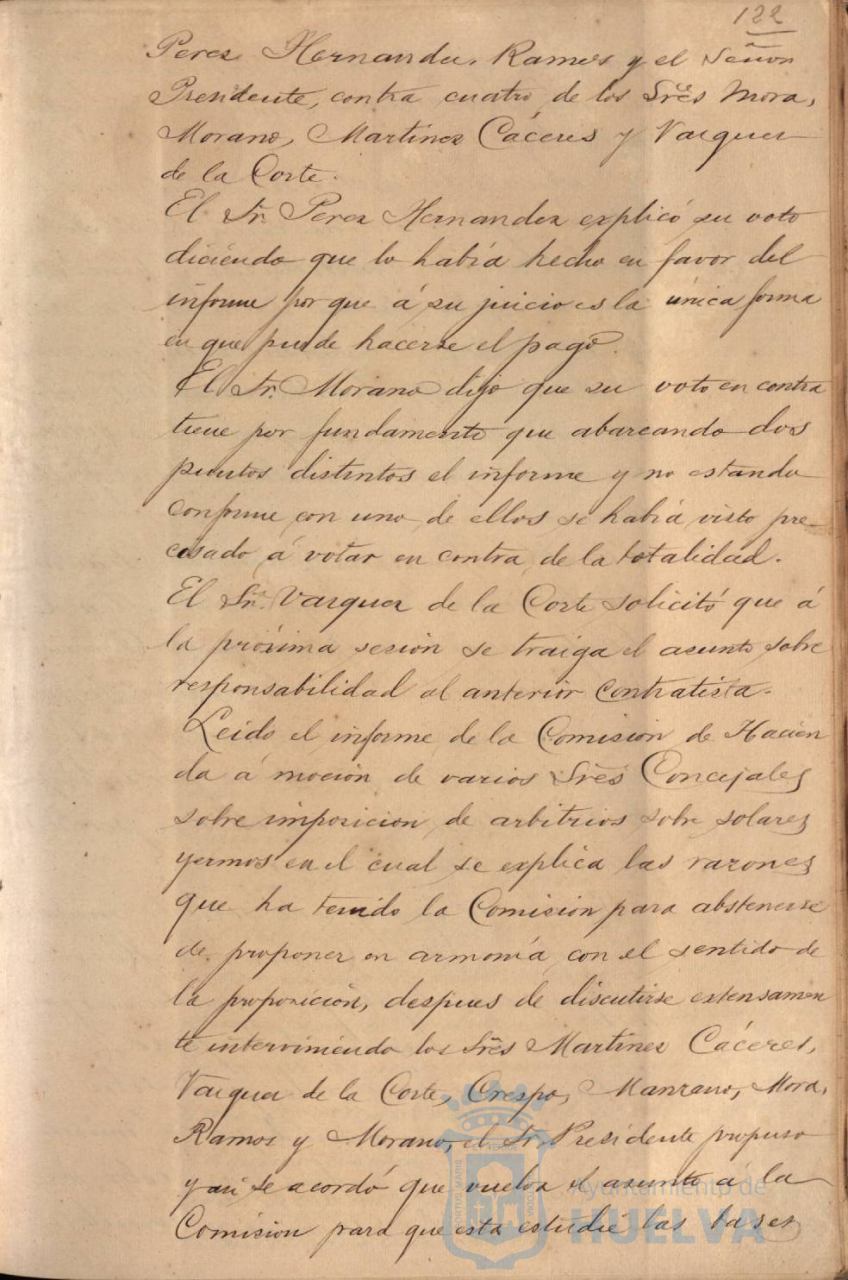 122
Perez Hernandez, Ramos y el Señor
Presidente, contra cuatro de los Sres Mora,
Morano, Martinez Cáceres y Vazquez
de la Corte.
El Sr. Perez Hernandez explicó su voto
diciendo que lo habia hecho en favor del
informe por que á su juicio es la única forma
en que puede hacerse el pago.
El Sr. Morano dijo que su voto en contra
tiene por fundamento que abarcando dos
puntos distintos el informe y no estando
conforme con uno de ellos se habia visto pre-
cisado á votar en contra de la totalidad.
El Sr. Vazquez de la Corte solicitó que á
la próxima sesion se traiga el asunto sobre
responsabilidad al anterior contratista.
Leido el informe de la Comision de Hacien
da á mocion de varios Sres Concejales
sobre imposicion de arbitrios sobre solares
yermos en el cual se explica las razones
que ha tenido la Comision para abstenerse
de proponer en armonía con el sentido de
la proposicion, despues de discutirse extensamen
te interviniendo los Sres Martinez Cáceres,
Vazquez de la Corte, Crespo, Manzano, Mora,
Ramos y Morano, el Sr. Presidente propuso
y asi se acordó que vuelva el asunto á la
Comision para que esta estudie las bases
Ayuntamiento de
HUELVA